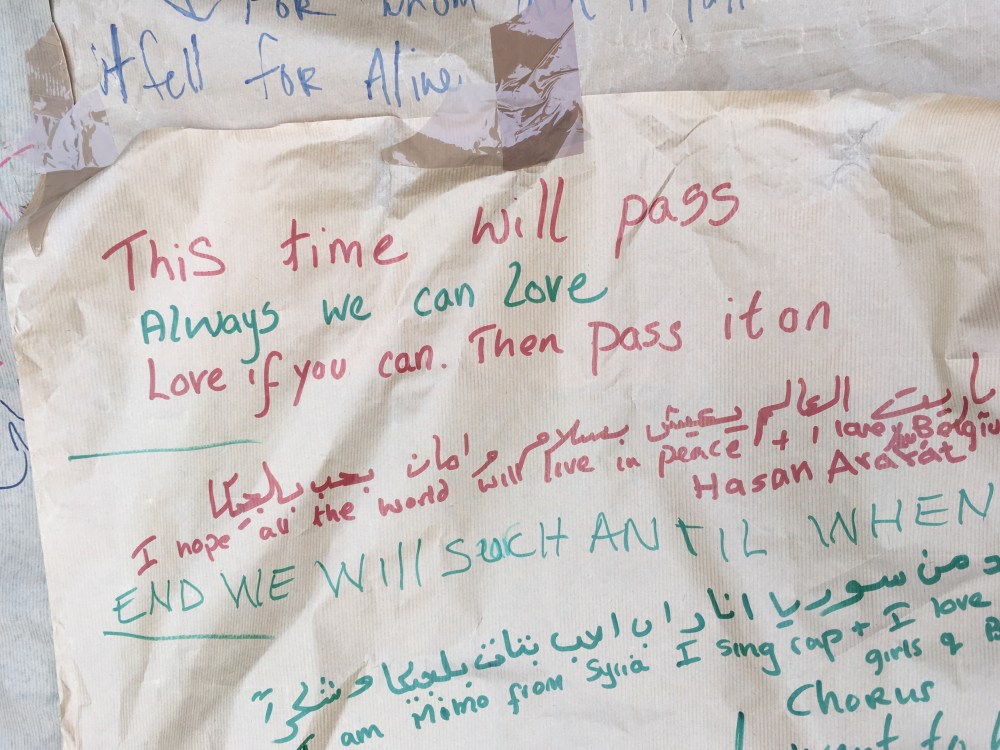 FOR whom
it fell FOR Aline
This time will pass
Always we can love
Love if you can. Then pass it on
يا ريت العالم يعيش بسلام وامان بحب بلجيكا
I hope all the world will live in peace + I love Belgiu
Hasan Ararat
END WE WIll SUCH ANTIL WHEN
من سوريا انا راب احب بنات بلجيكا وشكرآ
I am Mimo from Syria I sing rap + I love
girls &
Chorus
want to